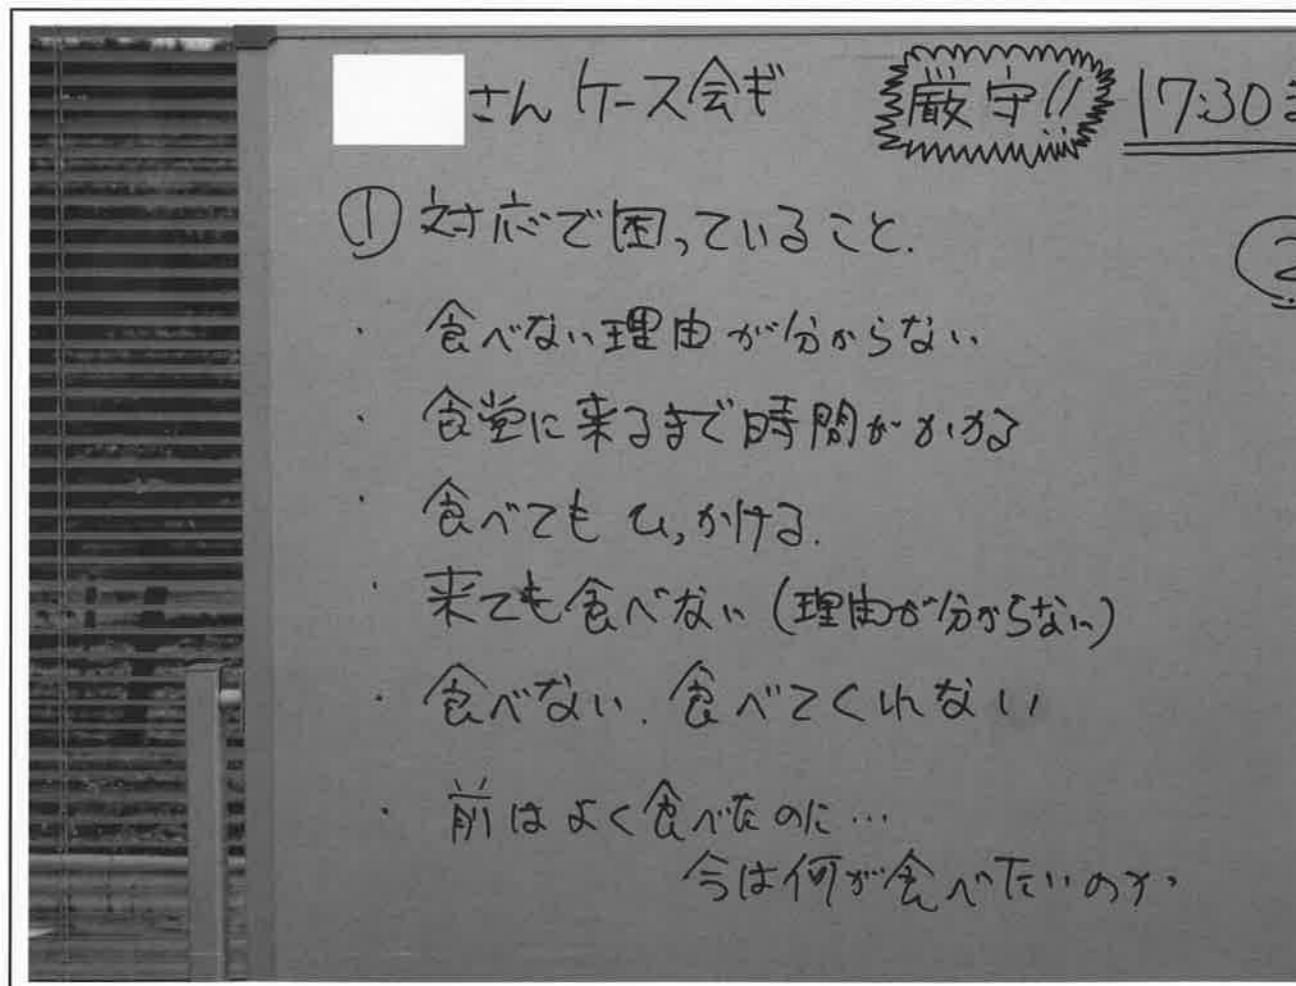 さんケース会ギ 厳守!! 17:30ま
① 対応で困っていること.
・ 食べない理由が分からない
・ 食堂に来るまで時間がかかる
・ 食べてもひっかける.
・ 来ても食べない(理由が分からない)
・ 食べない. 食べてくれない
・ 前はよく食べたのに…
今は何が食べたいのか
②